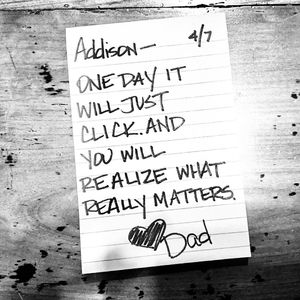 Addison— 4/7
ONE DAY IT
WILL JUST
CLICK. AND
YOU WILL
REALIZE WHAT
REALLY MATTERS.
Dad